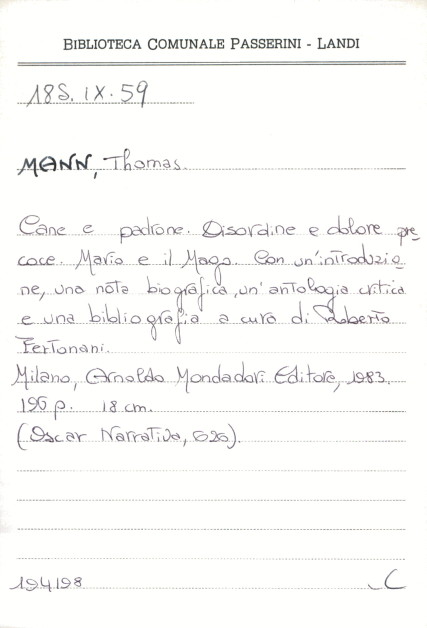 BIBLIOTECA COMUNALE PASSERINI - LANDI
18S. IX. 59
MANN, Thomas.
Cane e padrone. Disordine e dolore pre
coce. Mario e il Mago. Con un'introduzio
ne, una nota biografica, un'antologia critica
e una bibliografia a cura di Roberto
Fertonani.
Milano, Arnoldo Mondadori Editore, 1983.
196 p. 18 cm.
(Oscar Narrativa, 626).
194198
C